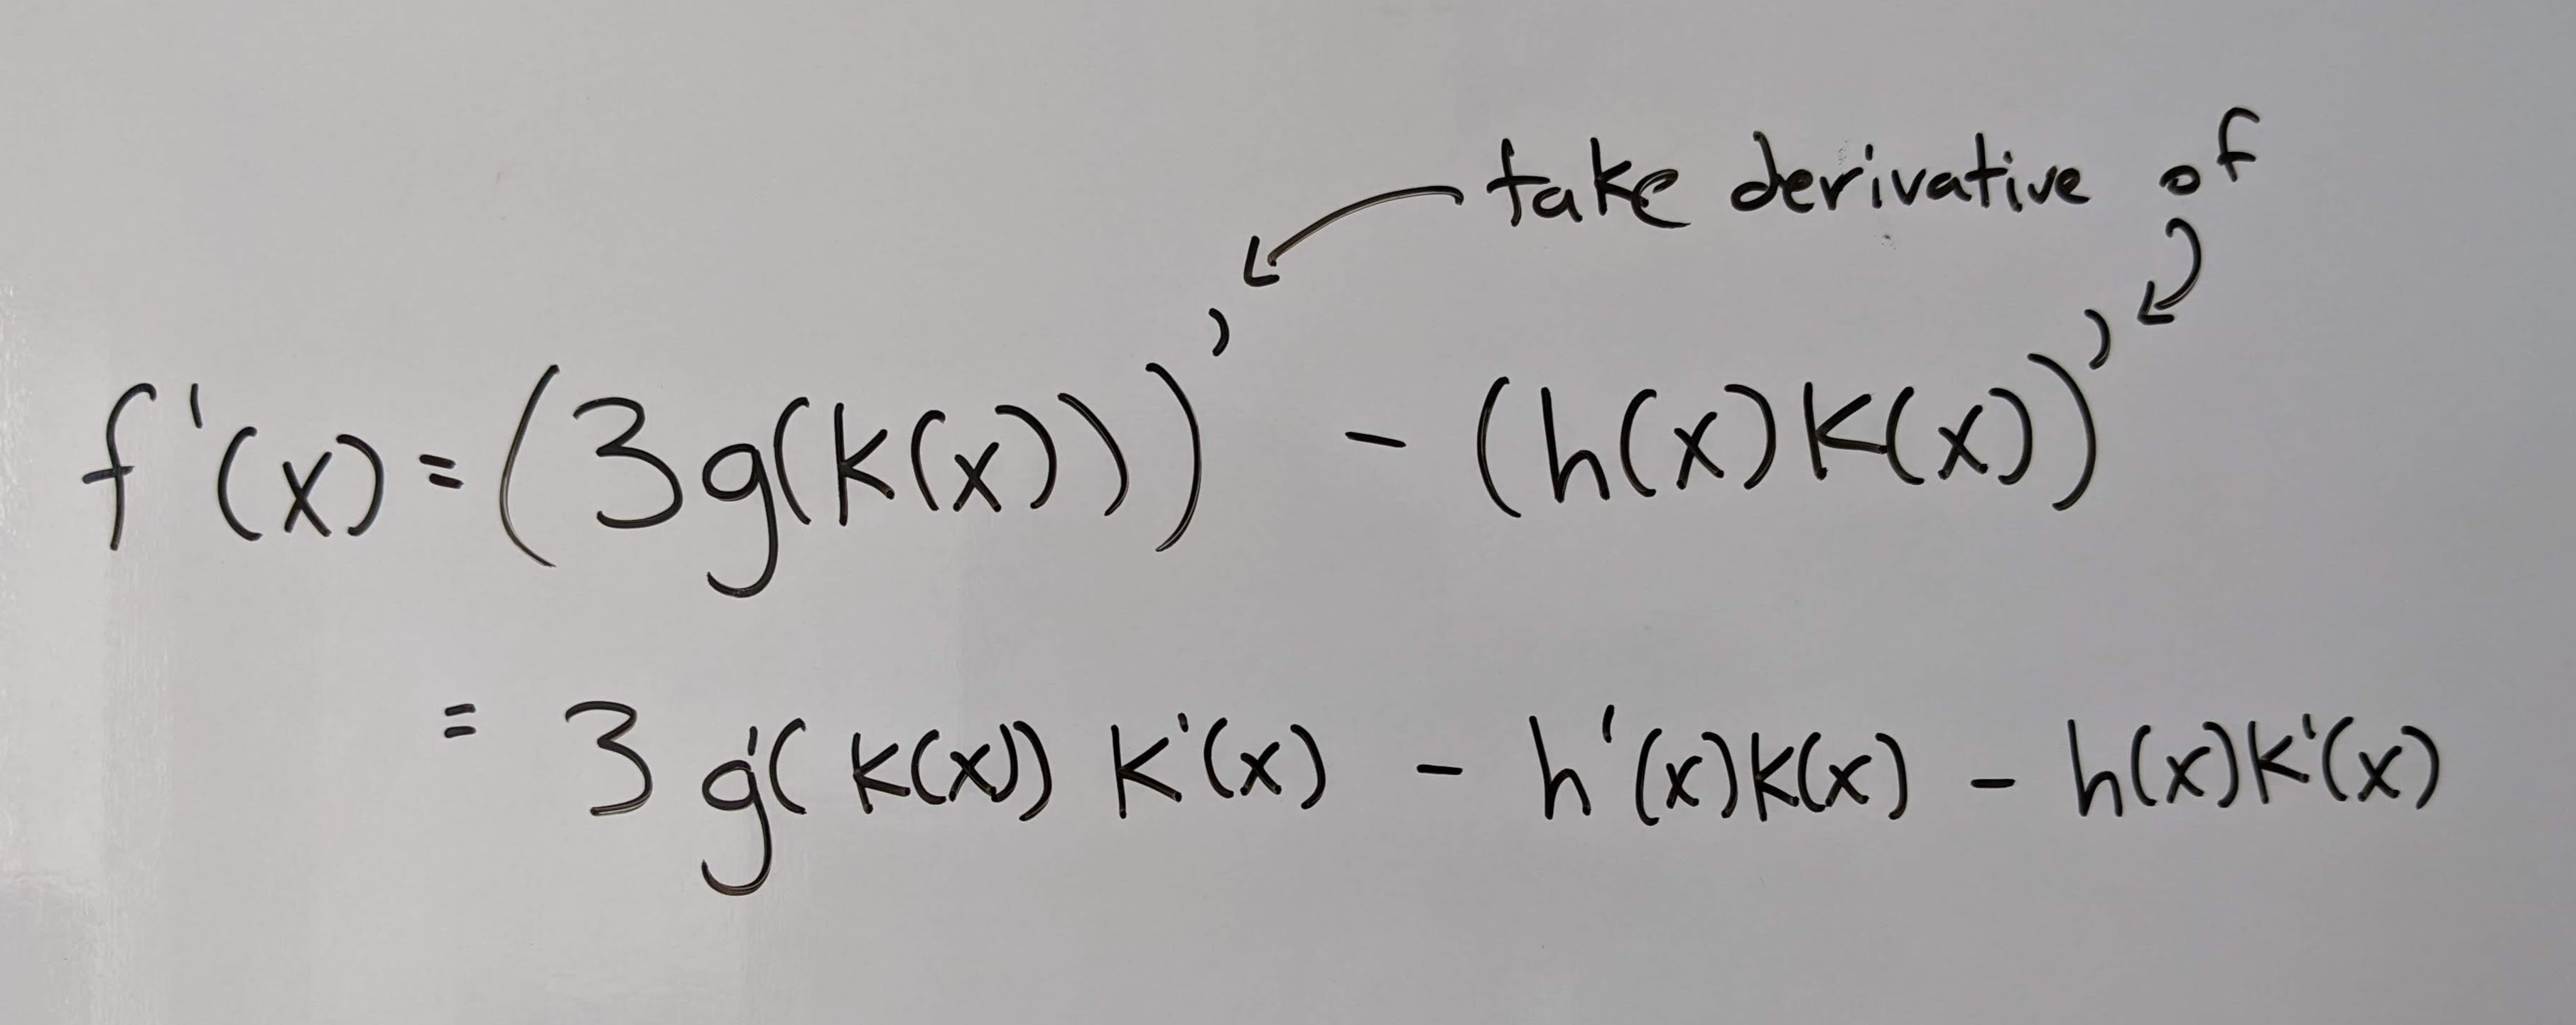 take derivative of
f'(x) = (3g(k(x)))' - (h(x)k(x))'
= 3g'(k(x)) k'(x) - h'(x)k(x) - h(x)k'(x)